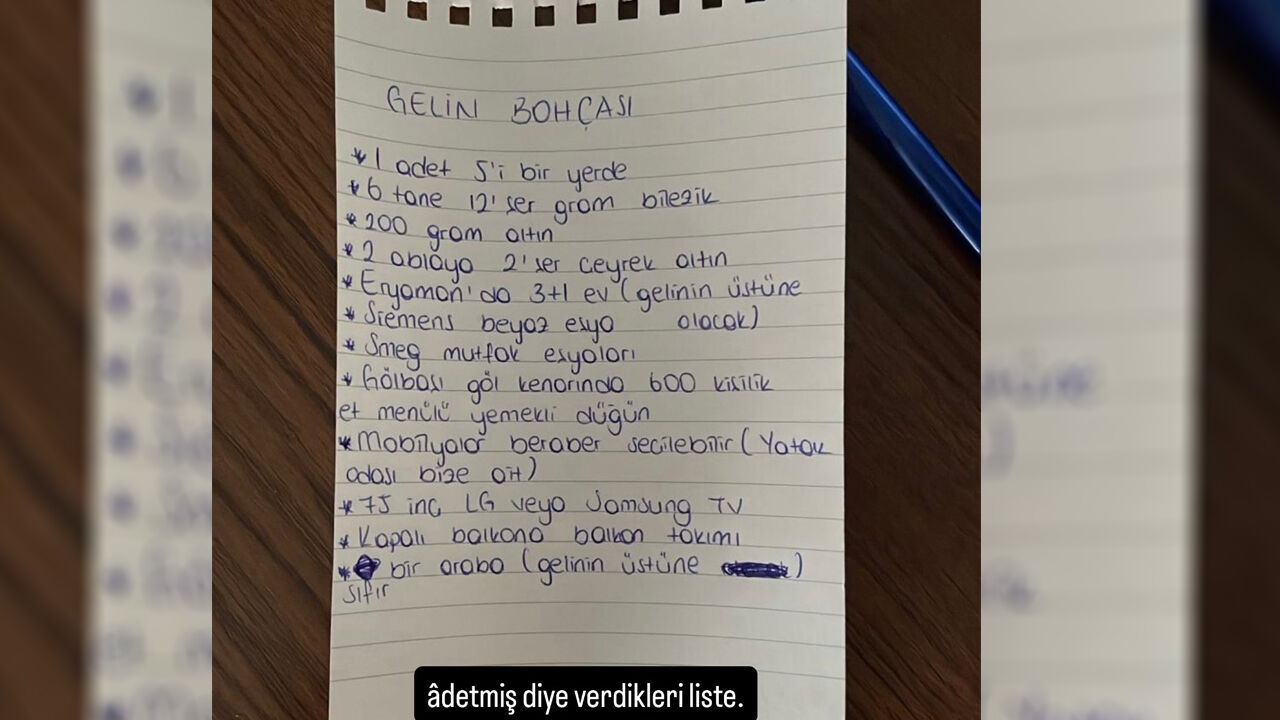 GELİN BOHÇASI
* 1 adet 5'i bir yerde
* 6 tane 12'şer gram bilezik
* 200 gram altın
* 2 ablaya 2'şer çeyrek altın
* Eryaman'da 3+1 ev (gelinin üstüne
* Siemens beyaz eşya olacak)
* Smeg mutfak eşyaları
* Gölbaşı göl kenarında 600 kişilik
et menülü yemekli düğün
* Mobilyalar beraber seçilebilir (Yatak
odası bize ait)
* 75 inç LG veya Samsung TV
* Kapalı balkona balkon takımı
* bir araba (gelinin üstüne )
sıfır
âdetmiş diye verdikleri liste.